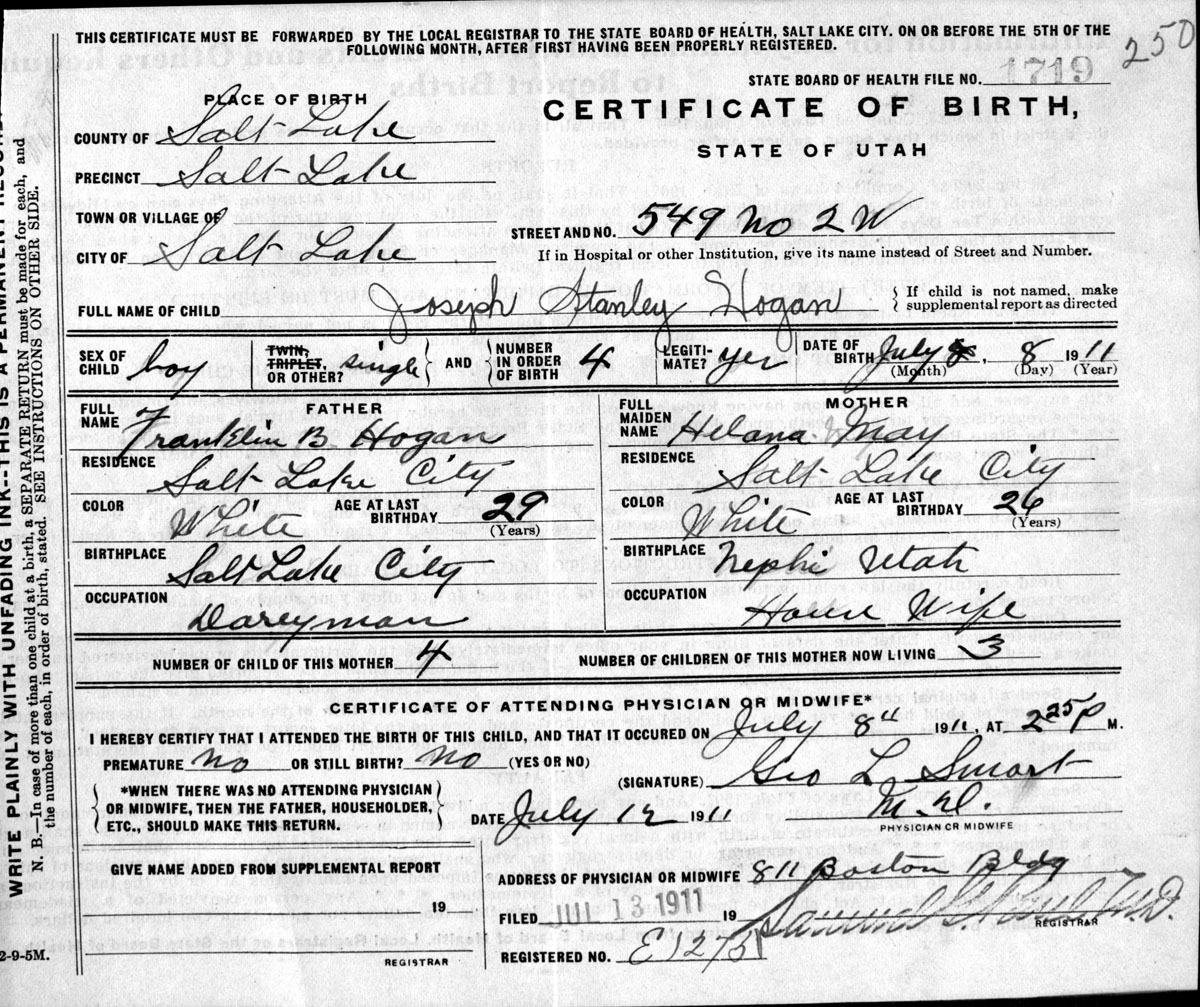 250
THIS CERTIFICATE MUST BE FORWARDED BY THE LOCAL REGISTRAR TO THE STATE BOARD OF HEALTH, SALT LAKE CITY. ON OR BEFORE THE 5TH OF THE
FOLLOWING MONTH, AFTER FIRST HAVING BEEN PROPERLY REGISTERED.
STATE BOARD OF HEALTH FILE NO. 1719
PLACE OF BIRTH
CERTIFICATE OF BIRTH,
STATE OF UTAH
COUNTY OF Salt Lake
PRECINCT Salt Lake
TOWN OR VILLAGE OF
STREET AND NO. 549 No 2 W
CITY OF Salt Lake
If in Hospital or other Institution, give its name instead of Street and Number.
FULL NAME OF CHILD Joseph Stanley Hogan
{ If child is not named, make
supplemental report as directed
SEX OF CHILD boy
TWIN, TRIPLET, OR OTHER? single } AND { NUMBER IN ORDER OF BIRTH 4
LEGITI-MATE? yes
DATE OF BIRTH July, 8 1911
(Month) (Day) (Year)
FATHER
FULL NAME Franklin B. Hogan
RESIDENCE Salt Lake City
COLOR White AGE AT LAST BIRTHDAY 29 (Years)
BIRTHPLACE Salt Lake City
OCCUPATION Dareyman
MOTHER
FULL MAIDEN NAME Helana May
RESIDENCE Salt Lake City
COLOR White AGE AT LAST BIRTHDAY 26 (Years)
BIRTHPLACE Nephi Utah
OCCUPATION House Wife
NUMBER OF CHILD OF THIS MOTHER 4 NUMBER OF CHILDREN OF THIS MOTHER NOW LIVING 3
CERTIFICATE OF ATTENDING PHYSICIAN OR MIDWIFE*
I HEREBY CERTIFY THAT I ATTENDED THE BIRTH OF THIS CHILD, AND THAT IT OCCURED ON July 8" 1911, AT 2 25 P M.
PREMATURE No OR STILL BIRTH? No (YES OR NO)
(SIGNATURE) Geo L. Smart
M.D.
PHYSICIAN OR MIDWIFE
{ *WHEN THERE WAS NO ATTENDING PHYSICIAN
OR MIDWIFE, THEN THE FATHER, HOUSEHOLDER,
ETC., SHOULD MAKE THIS RETURN. }
DATE July 12 1911
GIVE NAME ADDED FROM SUPPLEMENTAL REPORT
19
REGISTRAR
ADDRESS OF PHYSICIAN OR MIDWIFE 811 Boston Bldg
FILED JUL 13 1911 19
REGISTRAR
REGISTERED NO. E1275
2-9-5M.
WRITE PLAINLY WITH UNFADING INK--THIS IS A PERMANENT RECORD
N. B.—In case of more than one child at a birth, a SEPARATE RETURN must be made for each, and
the number of each, in order of birth, stated. SEE INSTRUCTIONS ON OTHER SIDE.